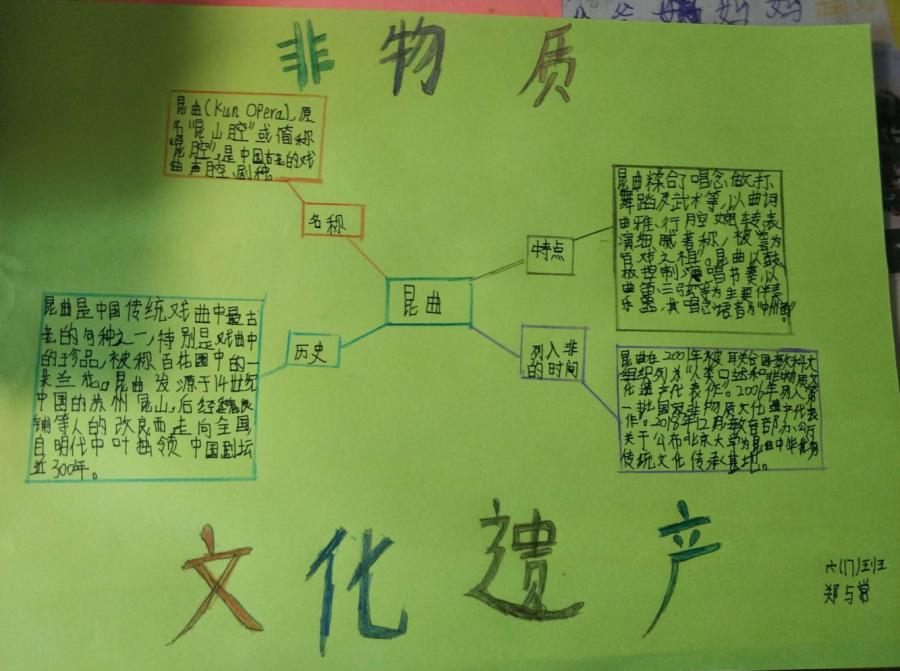 爷爷 妈妈
非物质
昆曲(Kun Opera),原
名"昆山腔"或简称
"昆腔",是中国古老的戏
曲声腔、剧种。
名称
昆曲糅合了唱念做打、
舞蹈及武术等,以曲词
典雅、行腔婉转、表
演细腻著称,被誉为
"百戏之祖"。昆曲以鼓
板控制演唱节奏,以
曲笛、三弦等为主要伴奏
乐器,其唱念语音为"中州韵"。
特点
昆曲
昆曲是中国传统戏曲中最古
老的句种之一,特别是戏曲中
的珍品,被称百花园中的一
朵兰花。昆曲发源于14世纪
中国的苏州昆山,后经魏良
铺等人的改良而走向全国,
自明代中叶独领中国剧坛
近300年。
历史
列入非
的时间
昆曲在2001年被联合国教科
组织列为"人类口述和非物质文
化遗产代表作"。2006年列入第
一批国家非物质文化遗产代表
作。2018年12月,教育部办公厅
关于公布北京大学为昆曲中华优秀
传统文化传承基地。
文化遗产
六(17)班
郑与常